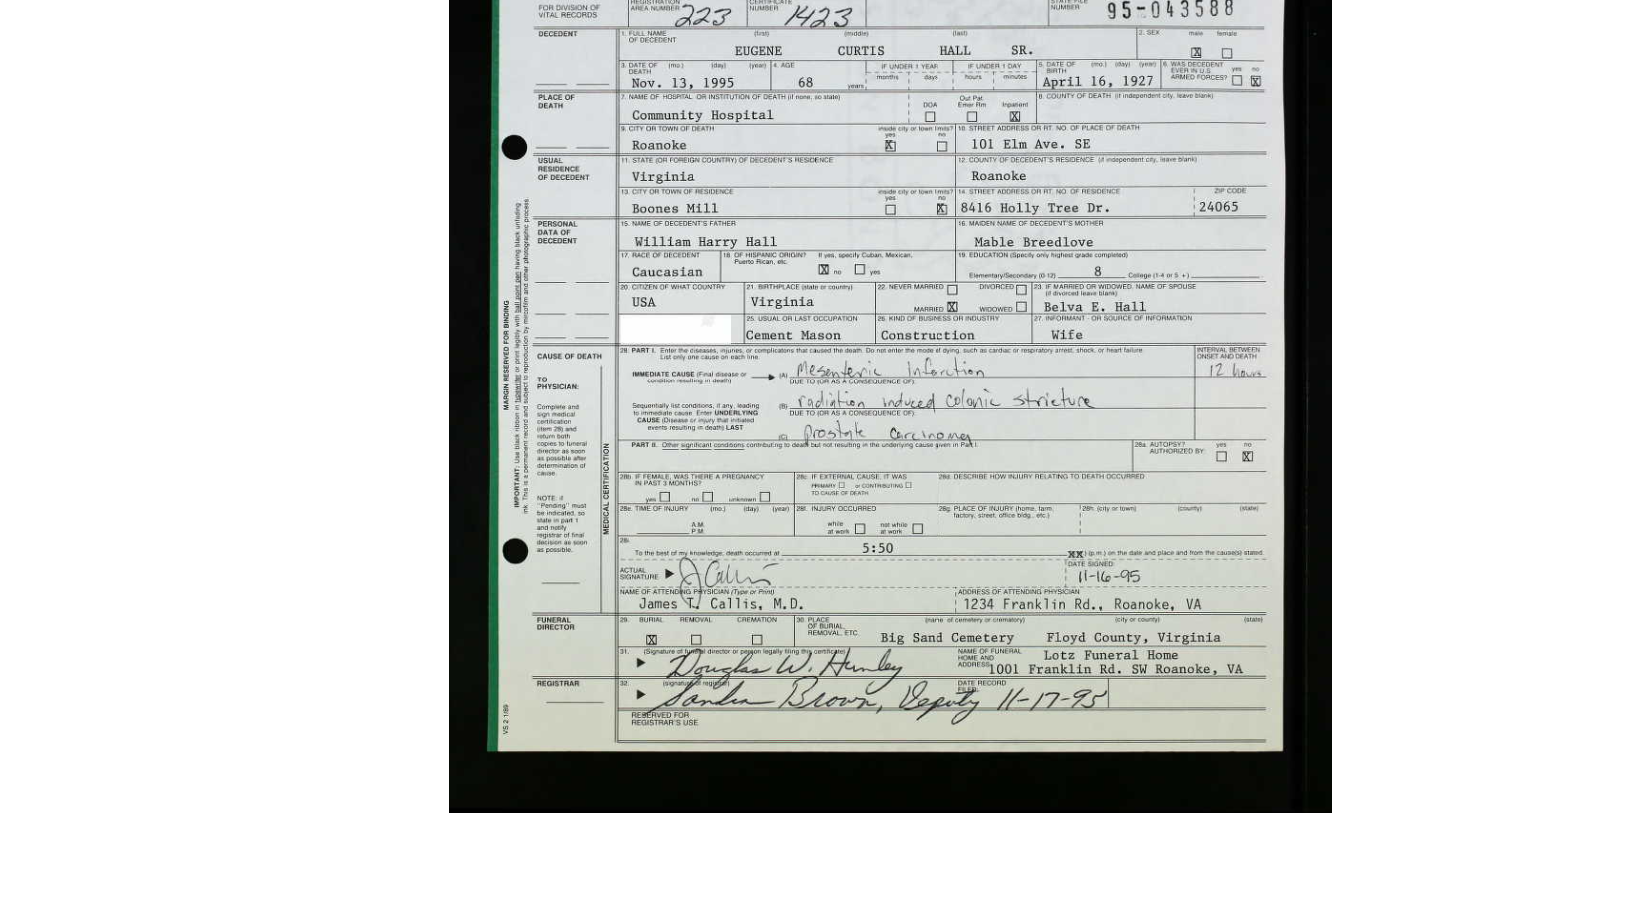 FOR DIVISION OF
VITAL RECORDS
REGISTRATION
AREA NUMBER 223
CERTIFICATE
NUMBER 1423
STATE FILE
NUMBER 95-043588
DECEDENT
1. FULL NAME
OF DECEDENT
(first) (middle) (last)
EUGENE CURTIS HALL SR.
2. SEX male female
X
3. DATE OF DEATH (mo.) (day) (year)
Nov. 13, 1995
4. AGE
68 years
IF UNDER 1 YEAR
months days
IF UNDER 1 DAY
hours minutes
5. DATE OF BIRTH (mo.) (day) (year)
April 16, 1927
6. WAS DECEDENT
EVER IN U.S.
ARMED FORCES? yes no
X
PLACE OF
DEATH
7. NAME OF HOSPITAL OR INSTITUTION OF DEATH (if none, so state)
Community Hospital
DOA
Out Pat.
Emer Rm
Inpatient
X
8. COUNTY OF DEATH (if independent city, leave blank)
9. CITY OR TOWN OF DEATH
Roanoke
inside city or town limits?
yes no
X
10. STREET ADDRESS OR RT. NO. OF PLACE OF DEATH
101 Elm Ave. SE
USUAL
RESIDENCE
OF DECEDENT
11. STATE (OR FOREIGN COUNTRY) OF DECEDENT'S RESIDENCE
Virginia
12. COUNTY OF DECEDENT'S RESIDENCE (if independent city, leave blank)
Roanoke
13. CITY OR TOWN OF RESIDENCE
Boones Mill
inside city or town limits?
yes no
X
14. STREET ADDRESS OR RT. NO. OF RESIDENCE
8416 Holly Tree Dr.
ZIP CODE
24065
PERSONAL
DATA OF
DECEDENT
15. NAME OF DECEDENT'S FATHER
William Harry Hall
16. MAIDEN NAME OF DECEDENT'S MOTHER
Mable Breedlove
17. RACE OF DECEDENT
Caucasian
18. OF HISPANIC ORIGIN? If yes, specify Cuban, Mexican,
Puerto Rican, etc.
X no yes
19. EDUCATION (Specify only highest grade completed)
Elementary/Secondary (0-12) 8 College (1-4 or 5 +)
20. CITIZEN OF WHAT COUNTRY
USA
21. BIRTHPLACE (state or country)
Virginia
22. NEVER MARRIED DIVORCED
MARRIED X WIDOWED
23. IF MARRIED OR WIDOWED, NAME OF SPOUSE
(if divorced leave blank)
Belva E. Hall
25. USUAL OR LAST OCCUPATION
Cement Mason
26. KIND OF BUSINESS OR INDUSTRY
Construction
27. INFORMANT - OR SOURCE OF INFORMATION
Wife
CAUSE OF DEATH
28. PART I. Enter the diseases, injuries, or complications that caused the death. Do not enter the mode of dying, such as cardiac or respiratory arrest, shock, or heart failure.
List only one cause on each line.
INTERVAL BETWEEN
ONSET AND DEATH
IMMEDIATE CAUSE (Final disease or
condition resulting in death)
(A) Mesenteric Infarction
12 hours
DUE TO (OR AS A CONSEQUENCE OF):
Sequentially list conditions, if any, leading
to immediate cause. Enter UNDERLYING
CAUSE (Disease or injury that initiated
events resulting in death) LAST
(B) radiation induced Colonic Stricture
DUE TO (OR AS A CONSEQUENCE OF)
(C) Prostate Carcinoma
TO
PHYSICIAN:
Complete and
sign medical
certification
(item 28) and
return both
copies to funeral
director as soon
as possible after
determination of
cause.
NOTE: if
"Pending" must
be indicated, so
state in part 1
and notify
registrar of final
decision as soon
as possible.
MEDICAL CERTIFICATION
PART II. Other significant conditions contributing to death but not resulting in the underlying cause given in Part I.
28a. AUTOPSY?
AUTHORIZED BY: yes no
X
28b. IF FEMALE, WAS THERE A PREGNANCY
IN PAST 3 MONTHS?
yes no unknown
28c. IF EXTERNAL CAUSE, IT WAS
PRIMARY or CONTRIBUTING
TO CAUSE OF DEATH
28d. DESCRIBE HOW INJURY RELATING TO DEATH OCCURRED
28e. TIME OF INJURY (mo.) (day) (year)
A.M.
P.M.
28f. INJURY OCCURRED
while at work not while at work
28g. PLACE OF INJURY (home, farm,
factory, street, office bldg., etc.)
28h. (city or town) (county) (state)
28i.
To the best of my knowledge, death occurred at 5:50 XX (p.m.) on the date and place and from the cause(s) stated.
ACTUAL
SIGNATURE J Callis
DATE SIGNED:
11-16-95
NAME OF ATTENDING PHYSICIAN (Type or Print)
James T. Callis, M.D.
ADDRESS OF ATTENDING PHYSICIAN
1234 Franklin Rd., Roanoke, VA
FUNERAL
DIRECTOR
29. BURIAL REMOVAL CREMATION
X
30. PLACE
OF BURIAL,
REMOVAL, ETC.
(name of cemetery or crematory) (city or county) (state)
Big Sand Cemetery Floyd County, Virginia
31. (Signature of funeral director or person legally filing this certificate)
Douglas W. Hunley
NAME OF FUNERAL
HOME AND
ADDRESS
Lotz Funeral Home
1001 Franklin Rd. SW Roanoke, VA
REGISTRAR
32. (signature of registrar)
Sandra Brown, Deputy
DATE RECORD
FILED:
11-17-95
RESERVED FOR
REGISTRAR'S USE
MARGIN RESERVED FOR BINDING
IMPORTANT: Use black ribbon in typewriter or print legibly with ball point pen having black unfading
ink. This is a permanent record and subject to reproduction by microfilm and other photographic process.
VS 2 1/89